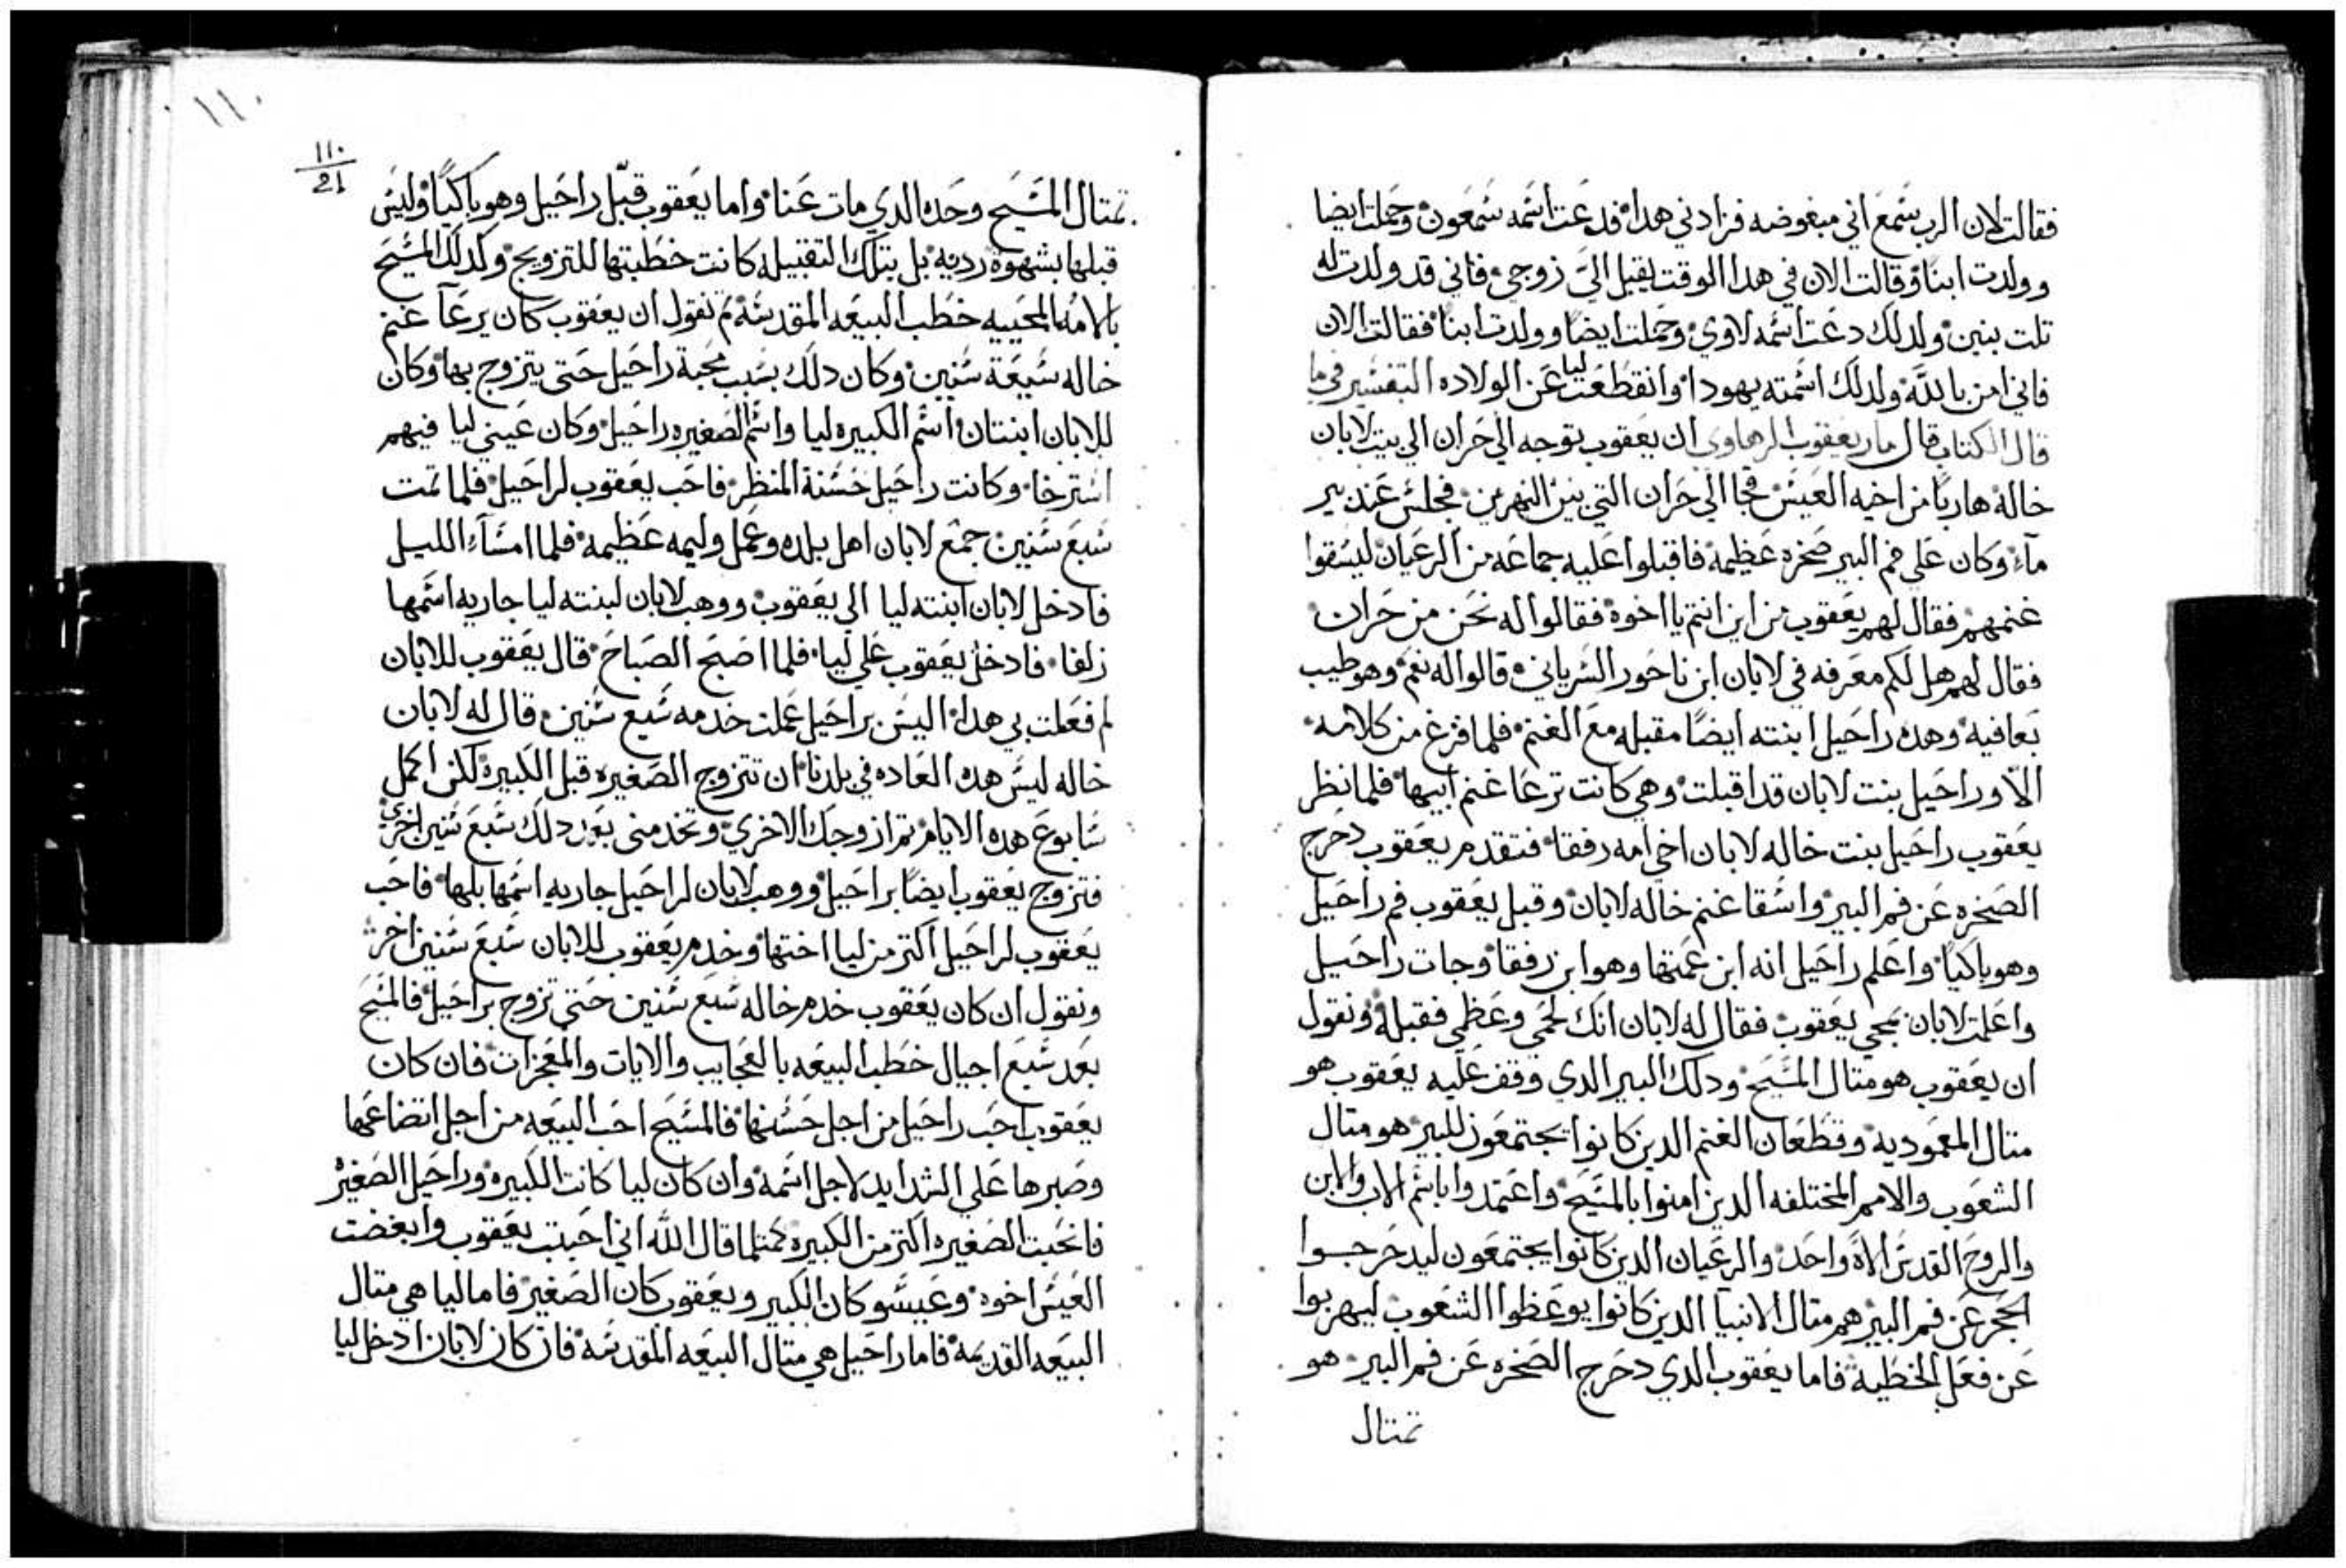 فقالت لان الرب سمع اني مبغوضه فزادني هدا فدعت اسمه سمعون وحملت ايضا
وولدت ابنا وقالت الان في هدا الوقت يقبل الي زوجي فاني قد ولدت له
تلت بنين ولدلك دعت اسمه لاوي وحملت ايضا وولدت ابنا فقالت الان
فاني امن بالله ولدلك اسمته يهودا وانقطعت ليا عن الولاده التفسير في ما
قال الكتاب قال مار يعقوب الرهاوي ان يعقوب توجه الي حران الي بيت لابان
خاله هاربا من اخيه العيس فجا الي حران التي بين النهرين فجلس عند بير
مآء وكان علي فم البير صخره عظيمه فاقبلوا عليه جماعه من الرعيان ليسقوا
غنمهم فقال لهم يعقوب من اين انتم يا اخوه فقالوا له نحن من حران
فقال لهم هل لكم معرفه في لابان ابن ناحور السرياني قالوا له نعم وهو طيب
بعافيه وهده راحيل ابنته ايضا مقبله مع الغنم فلما فرغ من كلامه
الا وراحيل بنت لابان قد اقبلت وهي كانت ترعا غنم ابيها فلما نظر
يعقوب راحيل بنت خاله لابان اخي امه رفقا فتقدم يعقوب دحرج
الصخره عن فم البير واسقا غنم خاله لابان وقبل يعقوب فم راحيل
وهو باكيا واعلم راحيل انه ابن عمتها وهو ابن رفقا وجات راحيل
واعلمت لابان بمجي يعقوب فقال له لابان انك لحمي وعظمي فقبله ونقول
ان يعقوب هو متال المسيح ودلك البير الدي وقف عليه يعقوب هو
متال المعموديه وقطعان الغنم الدين كانوا يجتمعون للبير هو متال
الشعوب والامم المختلفه الدين امنوا بالمسيح واعتمدوا باسم الاب والابن
والروح القدس الاه واحد والرعيان الدين كانوا يجتمعون ليدحرجوا
الحجر عن فم البير هم متال الانبيا الدين كانوا يوعظوا الشعوب ليهربوا
عن فعل الخطيه فاما يعقوب الدي دحرج الصخره عن فم البير هو
تمتال
١١٠
١١٠
21
تمتال المسيح وحده الدي مات عنا واما يعقوب قبل راحيل وهو باكيا وليس
قبلها بشهوه رديه بل بتلك التقبيله كانت خطبتها للتزويج وكدلك المسيح
بالامه المحييه خطب البيعه المقدسه تم نقول ان يعقوب كان يرعآ غنم
خاله سبعة سنين وكان دلك بسبب محبة راحيل حتي يتزوج بها وكان
للابان ابنتان اسم الكبيره ليا واسم الصغيره راحيل وكان عيني ليا فيهم
استرخا وكانت راحيل حسنة المنظر فاحب يعقوب لراحيل فلما تمت
سبع سنين جمع لابان اهل بلده وعمل وليمه عظيمه فلما امسآء الليل
فادخل لابان ابنته ليا الي يعقوب ووهب لابان لبنته ليا جاريه اسمها
زلفا فادخل يعقوب علي ليا فلما اصبح الصباح قال يعقوب للابان
لم فعلت بي هدا اليس براحيل عملت خدمه سبع سنين قال له لابان
خاله ليس هده العاده في بلدنا ان تتزوج الصغيره قبل الكبيره لكن اكمل
سابوع هده الايام تم ازوجك الاخري وتخدمني بعد دلك سبع سنين اخري
فتزوج يعقوب ايضا براحيل ووهب لابان لراحيل جاريه اسمها بلها فاحب
يعقوب لراحيل اكتر من ليا اختها وخدم يعقوب للابان سبع سنين اخر
ونقول ان كان يعقوب خدم خاله سبع سنين حتي تزوج براحيل فالمسيح
بعد سبع اجيال خطب البيعه بالعجايب والايات والمعجزات فان كان
يعقوب احب راحيل من اجل حسنها فالمسيح احب البيعه من اجل اتضاعها
وصبرها علي الشدايد لاجل اسمه وان كان ليا كانت الكبيره وراحيل الصغيره
فانحبت الصغيره اكتر من الكبيره كمتلما قال الله اني احببت يعقوب وابغضت
العيس اخوه وعيسو كان الكبير ويعقوب كان الصغير فاما ليا هي متال
البيعه القديمه فاما راحيل هي متال البيعه المقدسه فان كان لابان ادخل ليا